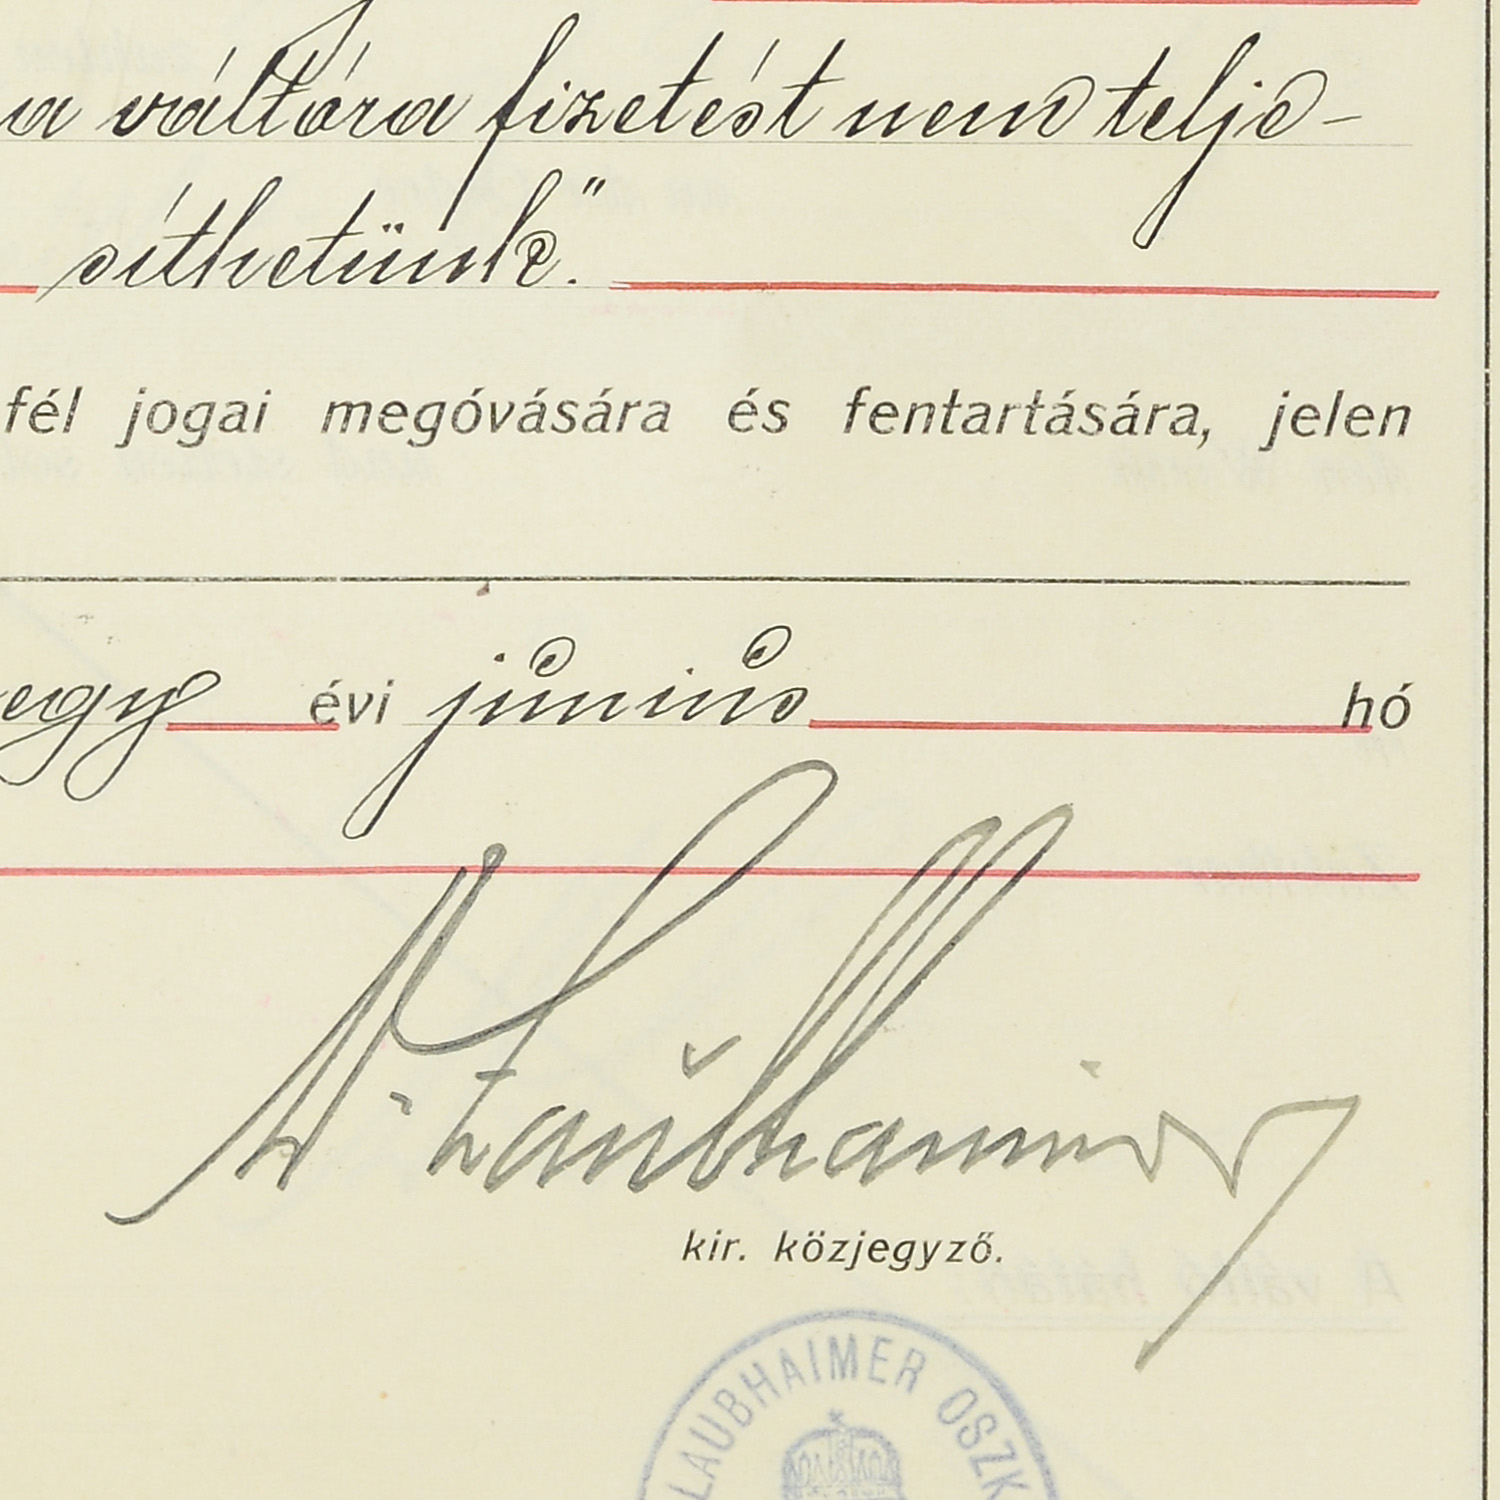 a váltóra fizetést nem telje-
síthetünk."
fél jogai megóvására és fentartására, jelen
egy évi június hó
Dr. Laubhaimer
kir. közjegyző.
LAUBHAIMER OSZK